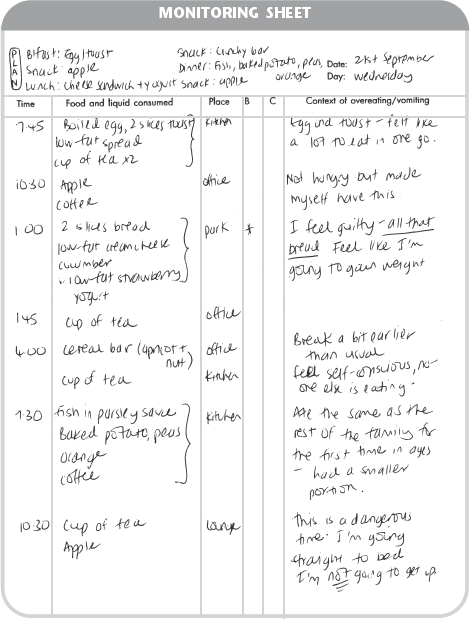 MONITORING SHEET
PLAN
B/fast: Egg/toast
Snack: apple
Lunch: Cheese sandwich + yogurt
Snack: Crunchy bar
Dinner: Fish, baked potato, peas, orange
Snack: apple
Date: 21st September
Day: Wednesday
Time Food and liquid consumed Place B C Context of overeating/vomiting
7.45 Boiled egg, 2 slices toast kitchen Egg and toast - felt like
low-fat spread a lot to eat in one go.
cup of tea x2
10.30 Apple office Not hungry but made
coffee myself have this
1.00 2 slices bread park * I feel guilty - all that
low-fat cream cheese bread Feel like I'm
cucumber going to gain weight
low-fat strawberry
yogurt
1.45 cup of tea office
4.00 cereal bar (apricot + nut) office Break a bit earlier
than usual
cup of tea kitchen feel self-conscious, no-
one else is eating.
7.30 Fish in parsley sauce kitchen Ate the same as the
Baked potato, peas rest of the family for
orange the first time in ages
coffee - had a smaller
portion.
10.30 Cup of tea Lounge This is a dangerous
Apple time. I'm going
straight to bed
I'm not going to get up